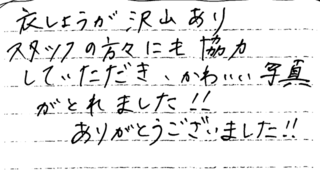 衣しょうが沢山あり
スタッフの方々にも協力
していただき、かわいい写真
がとれました!!
ありがとうございました!!